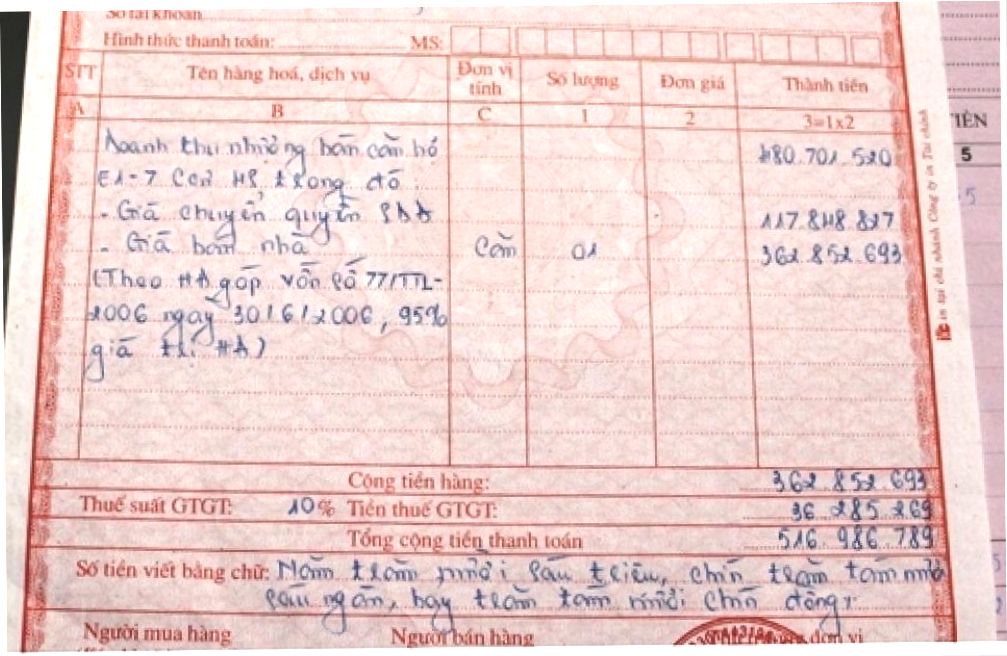 Số tài khoản
Hình thức thanh toán: MS:
STT Tên hàng hoá, dịch vụ Đơn vị tính Số lượng Đơn giá Thành tiền
A B C 1 2 3=1x2
Doanh thu nhượng bán căn hộ 480.701.520
E1-7 Cao ốc trong đó:
- Giá chuyển quyền SDĐ 117.848.827
- Giá bán nhà Căn 01 362.852.693
(Theo HĐ góp vốn số 77/TTL-
2006 ngày 30/6/2006, 95%
giá trị HĐ)
Cộng tiền hàng: 362.852.693
Thuế suất GTGT: 10% Tiền thuế GTGT: 36.285.269
Tổng cộng tiền thanh toán 516.986.789
Số tiền viết bằng chữ: Năm trăm mười sáu triệu, chín trăm tám mươi
sáu ngàn, bảy trăm tám mươi chín đồng
Người mua hàng Người bán hàng đơn vị
TIỀN
5
In tại chi nhánh Công ty in Tài chính